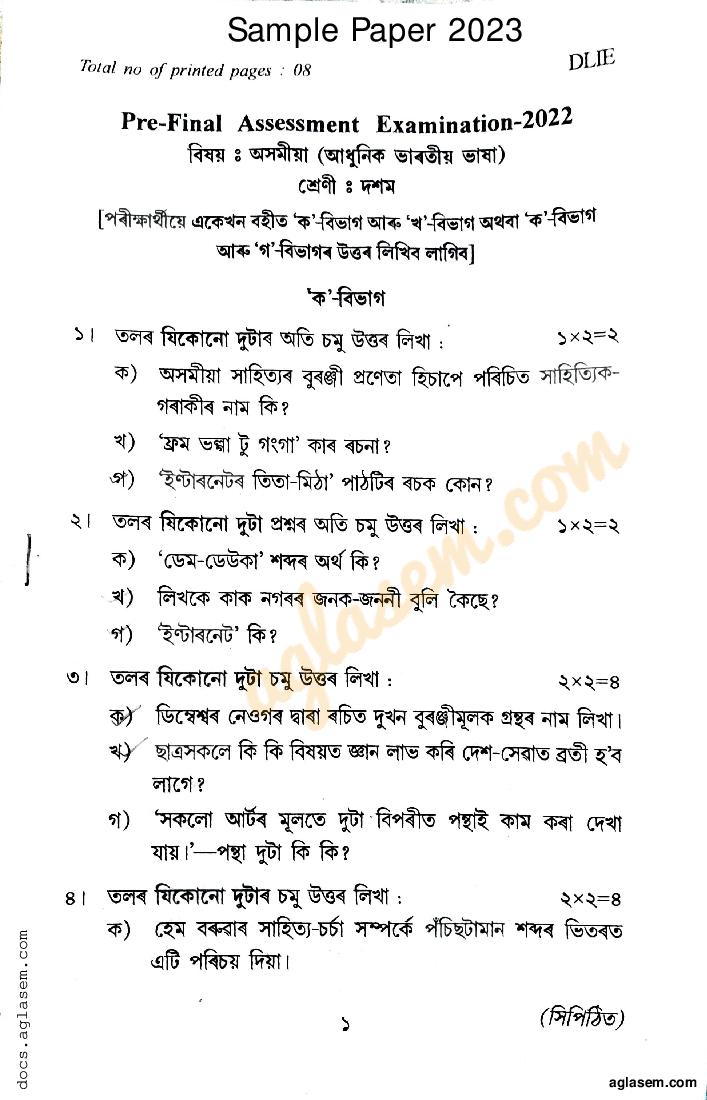 Sample Paper 2023
Total no of printed pages : 08
DLIE
Pre-Final Assessment Examination-2022
বিষয় ঃ অসমীয়া (আধুনিক ভাৰতীয় ভাষা)
শ্ৰেণী ঃ দশম
[পৰীক্ষাৰ্থীয়ে একেখন বহীত ‘ক’-বিভাগ আৰু ‘খ’-বিভাগ অথবা ‘ক’-বিভাগ
আৰু ‘গ’-বিভাগৰ উত্তৰ লিখিব লাগিব]
‘ক’-বিভাগ
১। তলৰ যিকোনো দুটাৰ অতি চমু উত্তৰ লিখা : ১×২=২
ক) অসমীয়া সাহিত্যৰ বুৰঞ্জী প্ৰণেতা হিচাপে পৰিচিত সাহিত্যিক-
গৰাকীৰ নাম কি?
খ) ‘ফ্ৰম ভল্গা টু গংগা’ কাৰ ৰচনা?
গ) ‘ইণ্টাৰনেটৰ তিতা-মিঠা’ পাঠটিৰ ৰচক কোন?
২। তলৰ যিকোনো দুটা প্ৰশ্নৰ অতি চমু উত্তৰ লিখা : ১×২=২
ক) ‘ডেম-ডেউকা’ শব্দৰ অৰ্থ কি?
খ) লিখকে কাক নগৰৰ জনক-জননী বুলি কৈছে?
গ) ‘ইণ্টাৰনেট’ কি?
৩। তলৰ যিকোনো দুটা চমু উত্তৰ লিখা : ২×২=৪
ক) ডিম্বেশ্বৰ নেওগৰ দ্বাৰা ৰচিত দুখন বুৰঞ্জীমূলক গ্ৰন্থৰ নাম লিখা।
খ) ছাত্ৰসকলে কি কি বিষয়ত জ্ঞান লাভ কৰি দেশ-সেৱাত ব্ৰতী হ’ব
লাগে?
গ) ‘সকলো আৰ্টৰ মূলতে দুটা বিপৰীত পন্থাই কাম কৰা দেখা
যায়।’—পন্থা দুটা কি কি?
৪। তলৰ যিকোনো দুটাৰ চমু উত্তৰ লিখা : ২×২=৪
ক) হেম বৰুৱাৰ সাহিত্য-চৰ্চা সম্পৰ্কে পঁচিছটামান শব্দৰ ভিতৰত
এটি পৰিচয় দিয়া।
১
(সিপিঠিত)
aglasem.com
docs.aglasem.com
aglasem.com